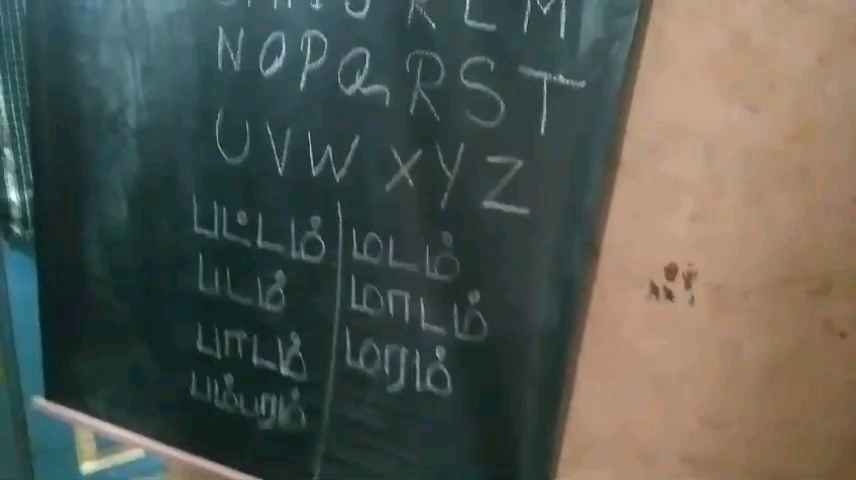 G H I J K L M
N O P Q R S T
U V W X Y Z
பட்டம் மடம்
படம் மாடம்
பாடம் மரம்
பம்பரம்